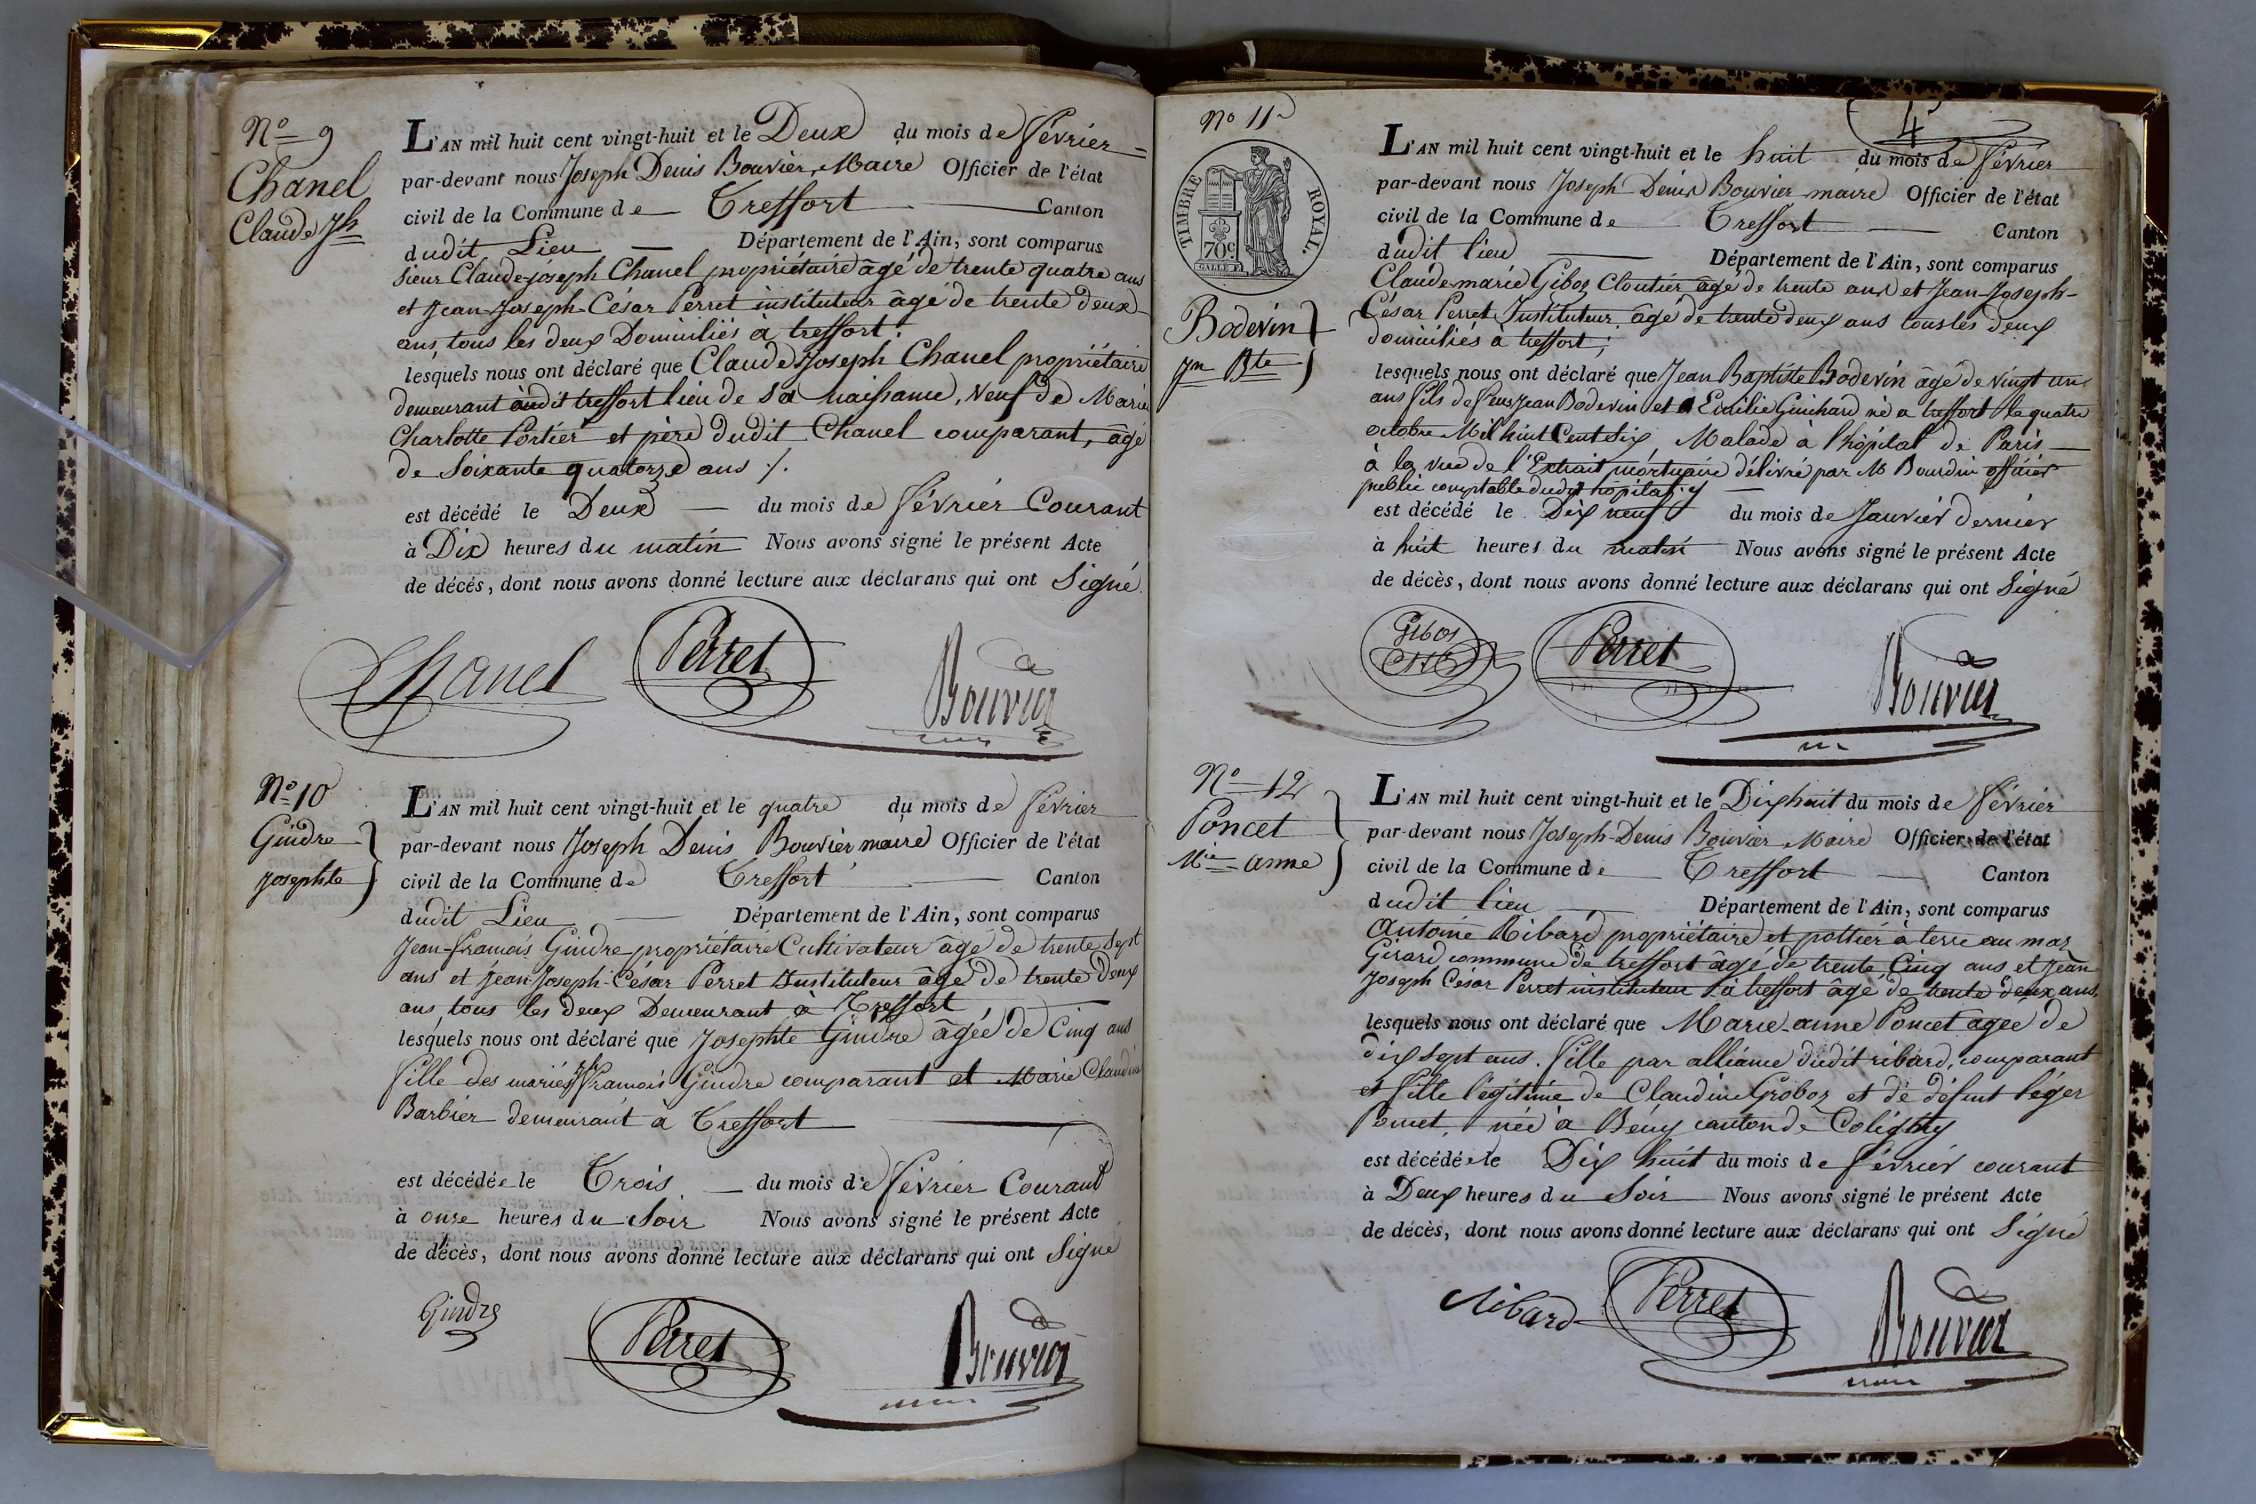 No 9
Chanel
Claude Jh
L'AN mil huit cent vingt-huit et le Deux du mois de février
par-devant nous Joseph Denis Bouvier, Maire Officier de l'état
civil de la Commune de Treffort Canton
dudit Lieu Département de l'Ain, sont comparus
sieur Claude-joseph Chanel propriétaire âgé de trente quatre ans
et Jean-Joseph-César Perret instituteur âgé de trente deux
ans, tous les deux Domiciliés à treffort.
lesquels nous ont déclaré que Claude Joseph Chanel propriétaire
demeurant audit treffort lieu de sa naissance, Veuf de Marie
Charlotte Portier et père dudit Chanel comparant, âgé
de soixante quatorze ans ./.
est décédé le Deux du mois de février Courant
à Dix heures du matin Nous avons signé le présent Acte
de décès, dont nous avons donné lecture aux déclarans qui ont Signé
Chanel Perret Bouvier
No 10
Gindre
josephte
L'AN mil huit cent vingt-huit et le quatre du mois de février
par-devant nous Joseph Denis Bouvier maire Officier de l'état
civil de la Commune de Treffort Canton
dudit Lieu Département de l'Ain, sont comparus
Jean-françois Gindre propriétaire Cultivateur âgé de trente sept
ans et Jean-Joseph-César Perret Instituteur âgé de trente deux
ans, tous les deux Demeurant à Treffort
lesquels nous ont déclaré que Josephte Gindre âgée de Cinq ans
fille des mariés françois Gindre comparant et Marie Claudine
Barbier demeurant à Treffort
est décédée le Trois du mois de février Courant
à onze heures du Soir Nous avons signé le présent Acte
de décès, dont nous avons donné lecture aux déclarans qui ont Signé
Gindre Perret Bouvier
4
No 11
TIMBRE ROYAL.
70c
Bodevin
Jn Bte
L'AN mil huit cent vingt-huit et le huit du mois de février
par-devant nous Joseph Denis Bouvier maire Officier de l'état
civil de la Commune de Treffort Canton
dudit lieu Département de l'Ain, sont comparus
Claude marie Giboz Cloutier âgé de trente ans et Jean-Joseph-
César Perret Instituteur âgé de trente deux ans tous les deux
domiciliés à treffort;
lesquels nous ont déclaré que Jean Baptiste Bodevin âgé de vingt un
ans fils de feus Jean Bodevin et Emilie Guichard né a treffort le quatre
octobre Mil huit Cent Six, Malade à l'hôpital de Paris
à la vue de l'Extrait mortuaire délivré par M Bourdin officier
public comptable dudit hôpital
est décédé le Dix neuf du mois de Janvier dernier
à huit heures du matin Nous avons signé le présent Acte
de décès, dont nous avons donné lecture aux déclarans qui ont Signé
Gibos Perret Bouvier
No 12
Poncet
Mie anne
L'AN mil huit cent vingt-huit et le Dix huit du mois de février
par-devant nous Joseph-Denis Bouvier Maire Officier de l'état
civil de la Commune de Treffort Canton
dudit lieu Département de l'Ain, sont comparus
Antoine Ribard propriétaire et pottier à terre au mas
Girard commune de treffort âgé de trente Cinq ans et Jean
Joseph César Perret instituteur à treffort âgé de trente deux ans,
lesquels nous ont déclaré que Marie-anne Poncet agée de
dix sept ans. fille par alliance dudit ribard, comparant
et fille légitime de Claudine Groboz et de défunt léger
Poncet, née à Bény canton de Coligny
est décédée le Dix huit du mois de février courant
à Deux heures du Soir Nous avons signé le présent Acte
de décès, dont nous avons donné lecture aux déclarans qui ont Signé
Ribard Perret Bouvier